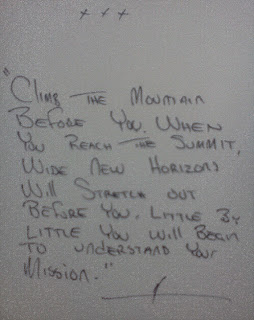 + + +
"Climb The Mountain
Before You. When
You Reach The Summit,
Wide New Horizons
Will Stretch out
Before You. Little By
Little You Will Begin
To understand Your
Mission."